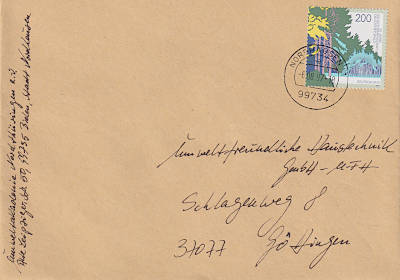 Umweltakademie Nordthüringen e.V.
Alte Leipziger Str. 50, 99735 Bielen,
200
NORDHAUSEN 1
99734
Umweltfreundliche Haustechnik
GmbH - UTH
Schlagenweg 8
37077 Göttingen